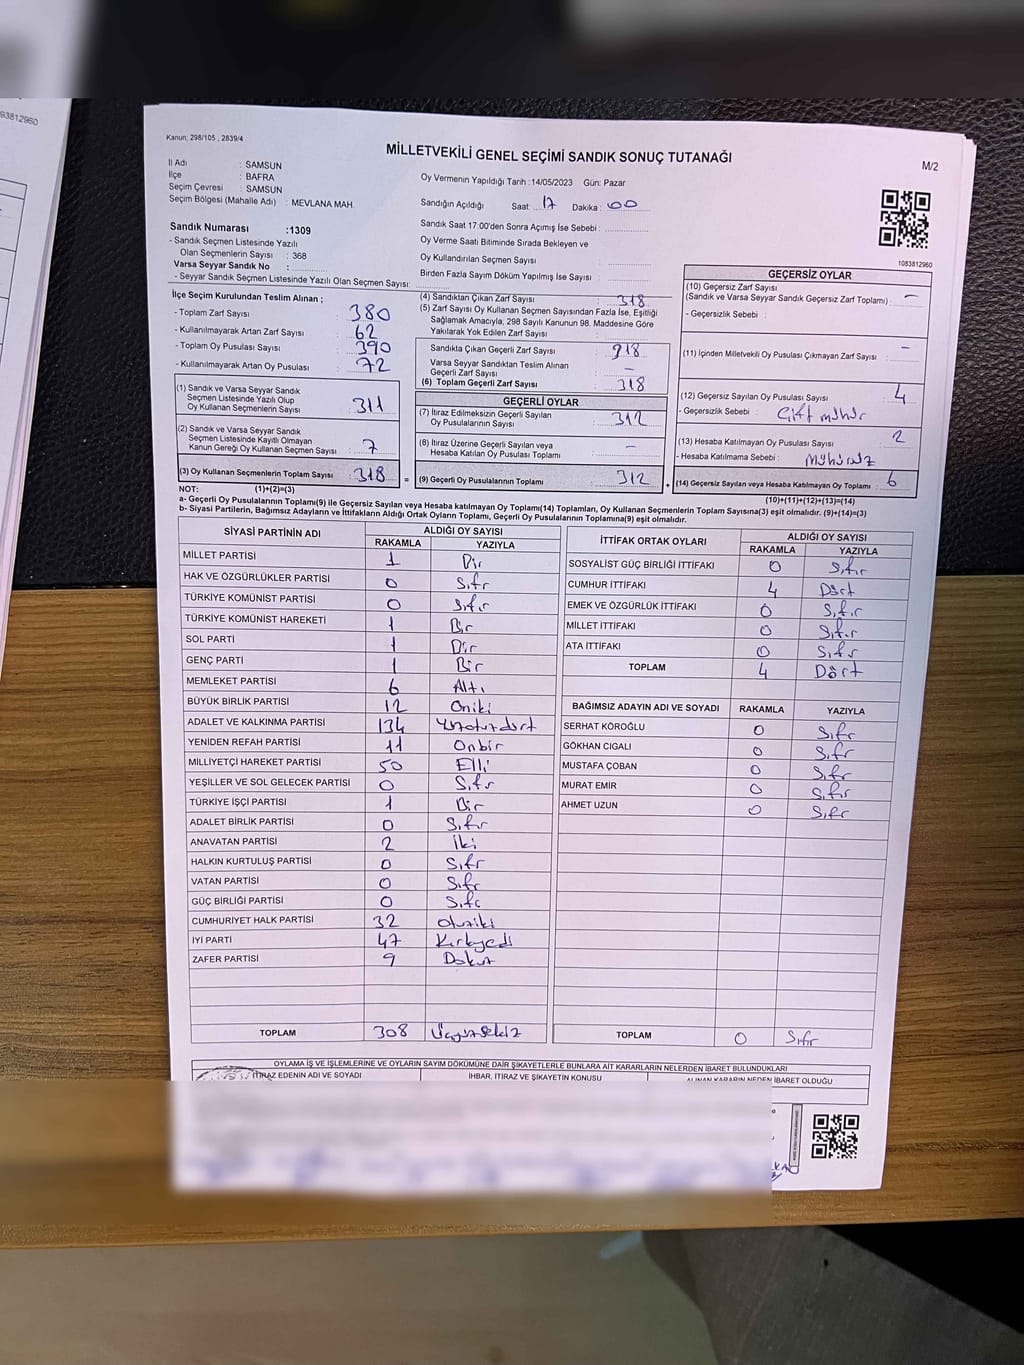 93812960
Kanun; 298/105 , 2839/4
MİLLETVEKİLİ GENEL SEÇİMİ SANDIK SONUÇ TUTANAĞI
M/2
İl Adı : SAMSUN
İlçe : BAFRA
Seçim Çevresi : SAMSUN
Seçim Bölgesi (Mahalle Adı) : MEVLANA MAH.
Oy Vermenin Yapıldığı Tarih :14/05/2023 Gün: Pazar
Sandığın Açıldığı Saat: 17 Dakika : 00
Sandık Numarası :1309
- Sandık Seçmen Listesinde Yazılı
Olan Seçmenlerin Sayısı : 368
Varsa Seyyar Sandık No :
- Seyyar Sandık Seçmen Listesinde Yazılı Olan Seçmen Sayısı:
Sandık Saat 17:00'den Sonra Açımış İse Sebebi :
Oy Verme Saati Bitiminde Sırada Bekleyen ve
Oy Kullandırılan Seçmen Sayısı :
Birden Fazla Sayım Döküm Yapılmış İse Sayısı :
1083812960
İlçe Seçim Kurulundan Teslim Alınan ;
- Toplam Zarf Sayısı : 380
- Kullanılmayarak Artan Zarf Sayısı : 62
- Toplam Oy Pusulası Sayısı : 390
- Kullanılmayarak Artan Oy Pusulası : 72
(1) Sandık ve Varsa Seyyar Sandık
Seçmen Listesinde Yazılı Olup
Oy Kullanan Seçmenlerin Sayısı : 311
(2) Sandık ve Varsa Seyyar Sandık
Seçmen Listesinde Kayıtlı Olmayan
Kanun Gereği Oy Kullanan Seçmen Sayısı : 7
(3) Oy Kullanan Seçmenlerin Toplam Sayısı : 318
(4) Sandıktan Çıkan Zarf Sayısı : 318
(5) Zarf Sayısı Oy Kullanan Seçmen Sayısından Fazla İse, Eşitliği
Sağlamak Amacıyla; 298 Sayılı Kanunun 98. Maddesine Göre
Yakılarak Yok Edilen Zarf Sayısı :
Sandıkta Çıkan Geçerli Zarf Sayısı : 918
Varsa Seyyar Sandıktan Teslim Alınan
Geçerli Zarf Sayısı : -
(6) Toplam Geçerli Zarf Sayısı : 318
GEÇERLİ OYLAR
(7) İtiraz Edilmeksizin Geçerli Sayılan
Oy Pusulalarının Sayısı : 312
(8) İtiraz Üzerine Geçerli Sayılan veya
Hesaba Katılan Oy Pusulası Toplamı : -
= (9) Geçerli Oy Pusulalarının Toplamı : 312
GEÇERSİZ OYLAR
(10) Geçersiz Zarf Sayısı
(Sandık ve Varsa Seyyar Sandık Geçersiz Zarf Toplamı) : -
- Geçersizlik Sebebi :
(11) İçinden Milletvekili Oy Pusulası Çıkmayan Zarf Sayısı : -
(12) Geçersiz Sayılan Oy Pusulası Sayısı : 4
- Geçersizlik Sebebi : Çift mühür
(13) Hesaba Katılmayan Oy Pusulası Sayısı : 2
- Hesaba Katılmama Sebebi : Mühürsüz
+ (14) Geçersiz Sayılan veya Hesaba Katılmayan Oy Toplamı : 6
NOT: (1)+(2)=(3)
(10)+(11)+(12)+(13)=(14)
a- Geçerli Oy Pusulalarının Toplamı(9) ile Geçersiz Sayılan veya Hesaba katılmayan Oy Toplamı(14) Toplamları, Oy Kullanan Seçmenlerin Toplam Sayısına(3) eşit olmalıdır. (9)+(14)=(3)
b- Siyasi Partilerin, Bağımsız Adayların ve İttifakların Aldığı Ortak Oyların Toplamı, Geçerli Oy Pusulalarının Toplamına(9) eşit olmalıdır.
SİYASİ PARTİNİN ADI ALDIĞI OY SAYISI
RAKAMLA YAZIYLA
MİLLET PARTİSİ 1 Bir
HAK VE ÖZGÜRLÜKLER PARTİSİ 0 Sıfır
TÜRKİYE KOMÜNİST PARTİSİ 0 Sıfır
TÜRKİYE KOMÜNİST HAREKETİ 1 Bir
SOL PARTİ 1 Bir
GENÇ PARTİ 1 Bir
MEMLEKET PARTİSİ 6 Altı
BÜYÜK BİRLİK PARTİSİ 12 Oniki
ADALET VE KALKINMA PARTİSİ 134 Yüzotuzdört
YENİDEN REFAH PARTİSİ 11 Onbir
MİLLİYETÇİ HAREKET PARTİSİ 50 Elli
YEŞİLLER VE SOL GELECEK PARTİSİ 0 Sıfır
TÜRKİYE İŞÇİ PARTİSİ 1 Bir
ADALET BİRLİK PARTİSİ 0 Sıfır
ANAVATAN PARTİSİ 2 İki
HALKIN KURTULUŞ PARTİSİ 0 Sıfır
VATAN PARTİSİ 0 Sıfır
GÜÇ BİRLİĞİ PARTİSİ 0 Sıfır
CUMHURİYET HALK PARTİSİ 32 otuziki
İYİ PARTİ 47 Kırkyedi
ZAFER PARTİSİ 9 Dokuz
TOPLAM 308 Üçyüzsekiz
İTTİFAK ORTAK OYLARI ALDIĞI OY SAYISI
RAKAMLA YAZIYLA
SOSYALİST GÜÇ BİRLİĞİ İTTİFAKI 0 Sıfır
CUMHUR İTTİFAKI 4 Dört
EMEK VE ÖZGÜRLÜK İTTİFAKI 0 Sıfır
MİLLET İTTİFAKI 0 Sıfır
ATA İTTİFAKI 0 Sıfır
TOPLAM 4 Dört
BAĞIMSIZ ADAYIN ADI VE SOYADI RAKAMLA YAZIYLA
SERHAT KÖROĞLU 0 Sıfır
GÖKHAN CIGALI 0 Sıfır
MUSTAFA ÇOBAN 0 Sıfır
MURAT EMİR 0 Sıfır
AHMET UZUN 0 Sıfır
TOPLAM 0 Sıfır
OYLAMA İŞ VE İŞLEMLERİNE VE OYLARIN SAYIM DÖKÜMÜNE DAİR ŞİKAYETLERLE BUNLARA AİT KARARLARIN NELERDEN İBARET BULUNDUKLARI
İTİRAZ EDENİN ADI VE SOYADI İHBAR, İTİRAZ VE ŞİKAYETİN KONUSU ALINAN KARARIN NEDEN İBARET OLDUĞU